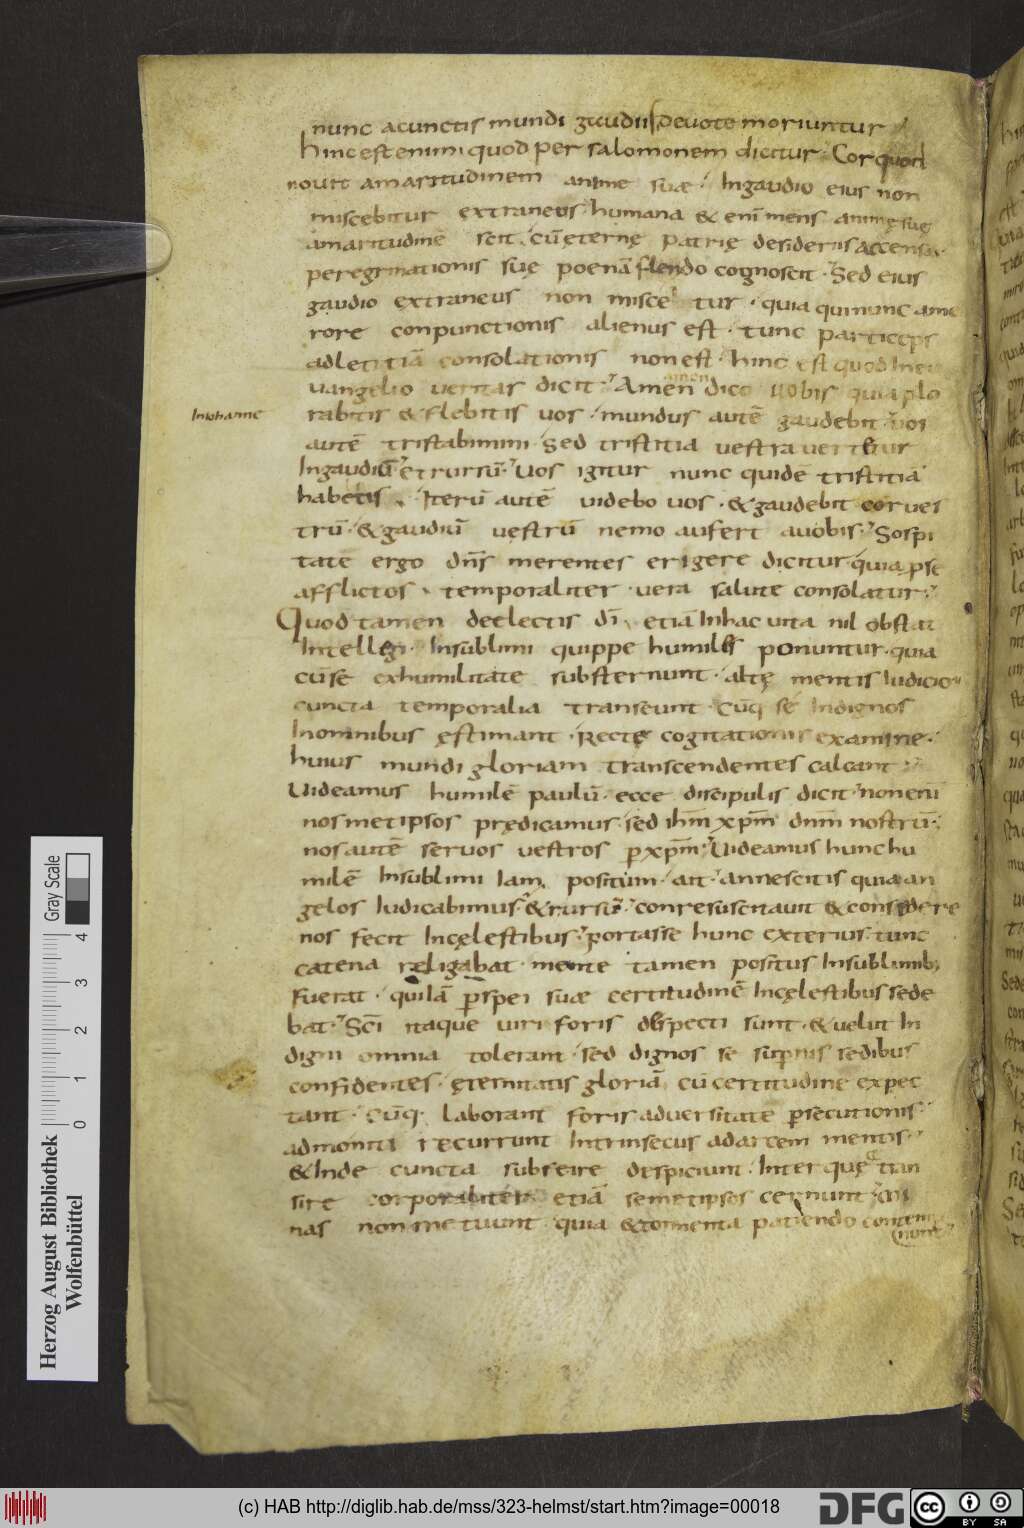 nunc acunctis mundi gaudiis deuote moriuntur
hinc est enim quod per salomonem dicitur · Cor quod
nouit amaritudinem anime suae · Ingaudio eius non
miscebitur extraneus · humana & eni mens animę suę
amaritudinē scit · cū ęternę patrię desideriis accensa ·
peregrinationis suę poenā flendo cognoscit · Sed eius
gaudio extraneus non miscetur · quia qui nunc ame
rore conpunctionis alienus est · tunc particeps
adletitiā consolationis non est · hinc est quod Ine
uangelio ueritas dicit · Amen amen dico uobis quia plo
In iohanne
rabitis & flebitis uos · mundus autē gaudebit · uos
autē tristabimini · Sed tristitia uestra uertetur
Ingaudiū · et rursū · Uos igitur nunc quidē tristitiā
habetis · Iterū autē uidebo uos · & gaudebit cor ues
trū · & gaudiū uestrū nemo aufert auobis · Sospi
tate ergo dn̄s merentes erigere dicitur · quia ipse
afflictos · temporaliter · uera salute consolatur ·
Quod tamen deelectis dī · etiā Inhac uita nil obstat
Intellegi · Insublimi quippe humiles ponuntur · quia
cū se exhumilitate substernunt · altę mentis Iudicio
cuncta temporalia transeunt · Cūq se Indignos
Inomnibus ęstimant · Rectę cogitationis examine ·
huius mundi gloriam transcendentes calcant
Uideamus humilē paulū · ecce discipulis dicit · non enī
nosmetipsos prędicamus · sed ihm̄ xpm̄ dnm̄ nostrū ·
nos autē seruos uestros p xpm̄ · Uideamus hunc hu
milē Insublimi Iam positum · ait · annescitis quia an
gelos Iudicabimus · & rursū · conresuscitauit & consedere
nos fecit Incęlestibus · Fortasse hunc exterius · tunc
catena religabat · mente tamen positus Insublimib;
fuerat · qui Iā p spei suae certitudinē Incęlestibus sede
bat · Scī itaque uiri foris despecti sunt · & uelut In
digni omnia tolerant · sed dignos se supnis sedibus
confidentes · ęternitatis gloriā cū certitudine expec
tant · Cūq · laborant foris aduersitate psecutionis
admonita recurrunt Intrinsecus adarcem mentis
& Inde cuncta subseire despiciunt · Inter quę & tran
sire corporaliter etiā semetipsos cernunt ·
nas non metuunt · quia & tormenta patiendo contem
nunt
Herzog August Bibliothek
Wolfenbüttel
Gray Scale
0 1 2 3 4
(c) HAB http://diglib.hab.de/mss/323-helmst/start.htm?image=00018
DFG
cc BY SA